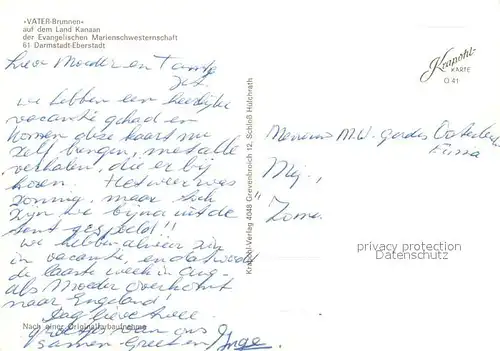 »VATER-Brunnen«
auf dem Land Kanaan
der Evangelischen Marienschwesternschaft
61 Darmstadt-Eberstadt
Lieve Moeder en Tante
Jet.
we hebben een heerlijke
vacantie gehad en
komen deze kaart nu
zelf brengen, met alle
verhalen, die er bij
horen. Het weer was
zonnig, maar toch
zijn we bijna uit de
tent gespoeld!!
We hebben alweer zin
in vacantie, en dat wordt
de laatste week in aug.-
als Moeder overkomt
naar Engeland!
Dag lieve twee
groetjes van ons
samen - Greet en Inge.
Nach einer Originalfarbaufnahme
Krapohl-Verlag 4048 Grevenbroich 12, Schloß Hülchrath
Krapohl
KARTE
O 41
Mevrouw M.W.
Mej.,
privacy protection
for CardCity